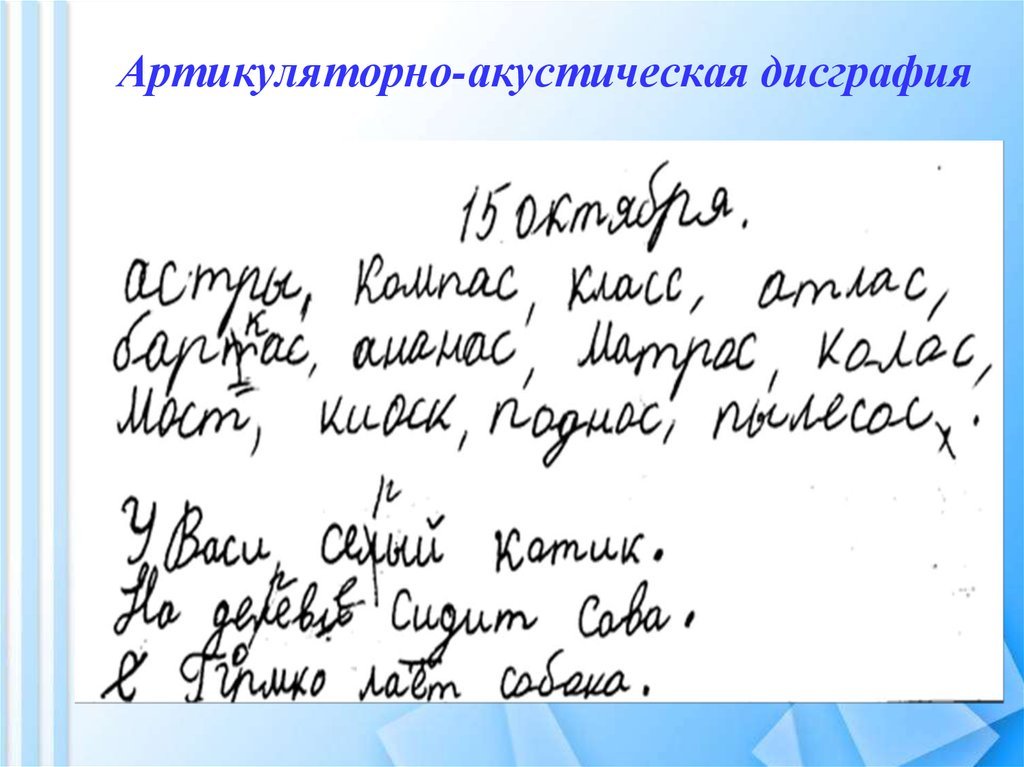 Артикуляторно-акустическая дисграфия
15 октября.
астры, компас, класс, атлас,
баркас, ананас, матрас, колас,
Мост, киоск, поднос, пылесос.
У Васи серый котик.
На дереве сидит сова.
Громко лает собака.